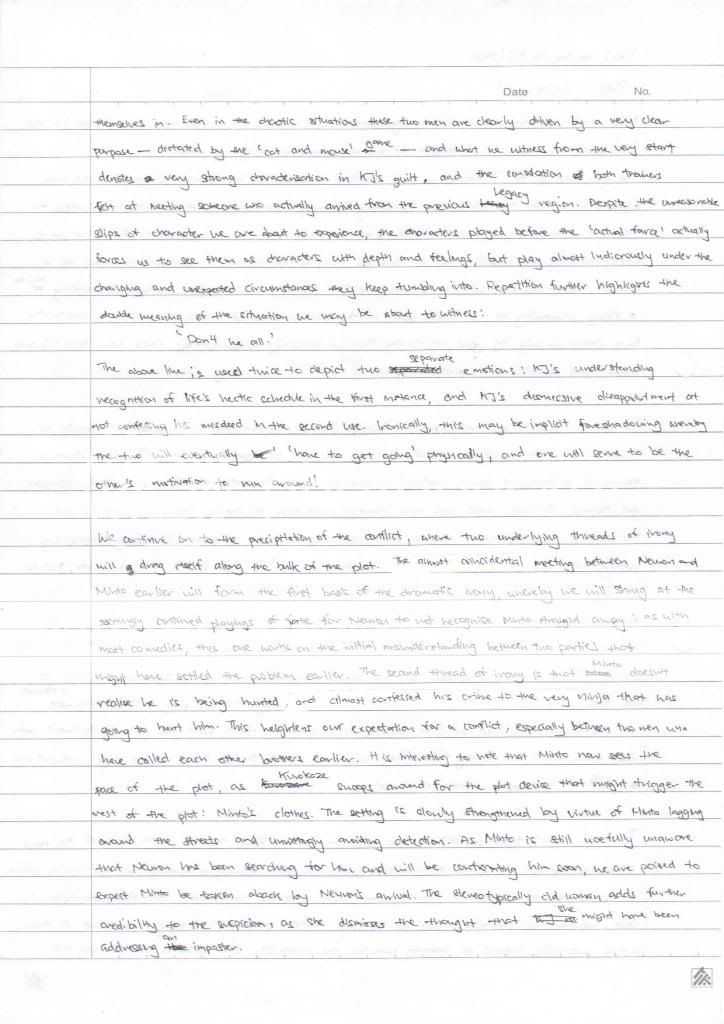 Date No.
themselves in. Even in the chaotic situations these two men are clearly driven by a very clear
purpose — dictated by the 'cat and mouse' game — and what we witness from the very start
denotes a very strong characterisation in KJ's guilt, and the consolation of both trainers
felt at meeting someone who actually arrived from the previous Legacy region. Despite the unreasonable
slips of character we are about to experience, the characters played before the 'actual farce' actually
forces us to see them as characters with depth and feelings, but play almost ludicrously under the
changing and unexpected circumstances they keep tumbling into. Repetition further highlights the
double meaning of the situation we may be about to witness:
'Don't we all.'
The above line is used twice to depict two separate emotions: KJ's understanding
recognition of life's hectic schedule in the first instance, and KJ's dismissive disappointment at
not confessing his misdeed in the second use. Ironically, this may be implicit foreshadowing whereby
the two will eventually 'have to get going' physically, and one will serve to be the
other's motivation to run around!
We continue on to the precipitation of the conflict, where two underlying threads of irony
will drag itself along the bulk of the plot. The almost coincidental meeting between Neuron and
Minto earlier will form the first basis of the dramatic irony, whereby we will at the
seemingly contrived playings of fate for Neuron to not recognise Minto straight away: as with
most comedies, this one works on the initial misunderstanding between two parties that
might have settled the problem earlier. The second thread of irony is that Minto doesn't
realise he is being hunted, and almost confessed his crime to the very ninja that was
going to hurt him. This heightens our expectation for a conflict, especially between two men who
have called each other brothers earlier. It is interesting to note that Minto now sets the
pace of the plot, as Kurokaze swoops around for the plot device that might trigger the
rest of the plot: Minto's clothes. The setting is slowly strengthened by virtue of Minto lagging
around the streets and unwittingly avoiding detection. As Minto is still woefully unaware
that Neuron has been searching for him and will be confronting him soon, we are poised to
expect Minto be taken aback by Neuron's arrival. The stereotypically old woman adds further
credibility to the suspicion, as she dismisses the thought that she might have been
addressing an imposter.